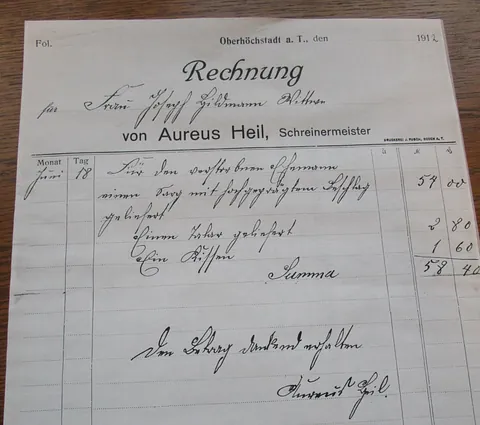 Fol. Oberhöchstadt a. T., den 1912
Rechnung
für Frau Joseph Hildmann Wittwe
von Aureus Heil, Schreinermeister
DRUCKEREI J. PUSCH, SODEN A. T.
Monat Tag
Juni 18 Für den verstorbnen Ehemann
einen Sarg mit hochgeprägtem Beschlag 54 00
geliefert
Einen Talar geliefert 2 80
Ein Kissen 1 60
Summa 58 40
Den Betrag dankend erhalten
Aureus Heil.